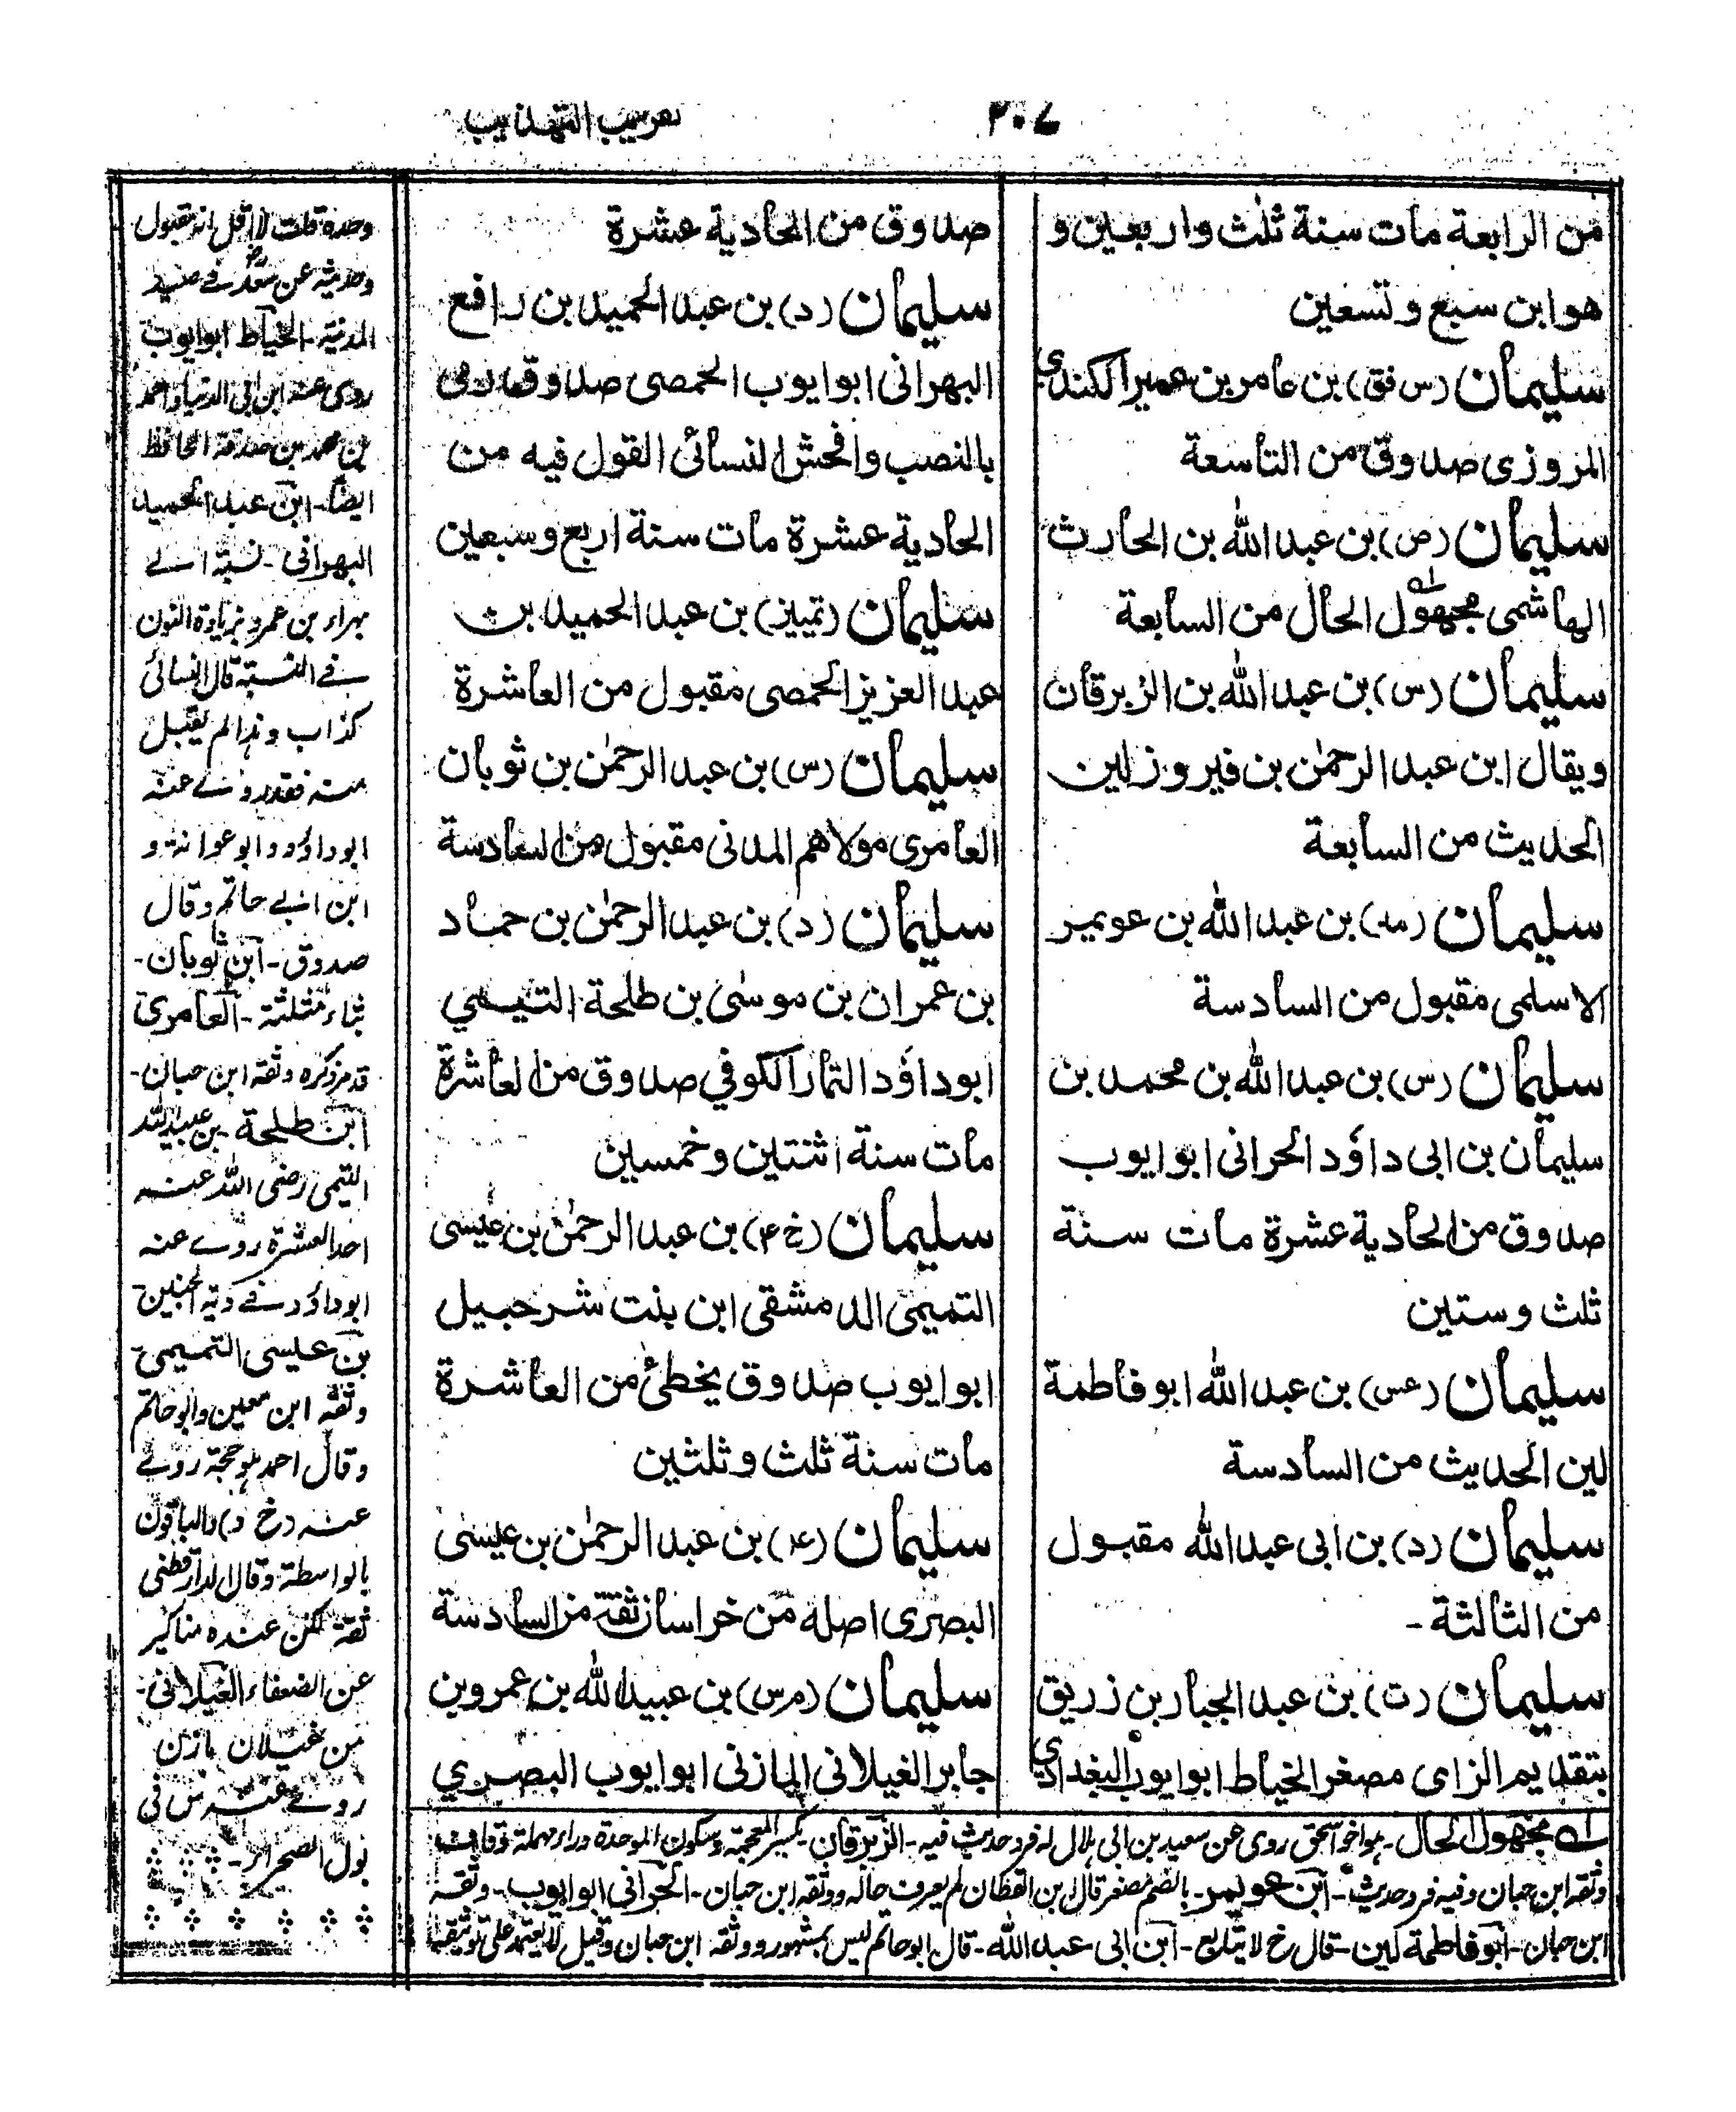 ٢٠٧
تقريب التهذيب
من الرابعة مات سنة ثلٰث واربعين و
هو ابن سبع وتسعين
سليمان (س فق) بن عامر بن عمير الكندي
المروزى صدوق من التاسعة
سليمان (ص) بن عبد الله بن الحارث
الهاشمى مجهول الحال من السابعة
سليمان (س) بن عبد الله بن الزبرقان
ويقال ابن عبد الرحمٰن بن فيروز لين
الحديث من السابعة
سليمان (مد) بن عبد الله بن عويمر
الاسلمى مقبول من السادسة
سليمان (س) بن عبد الله بن محمد بن
سليمان بن ابى داؤد الحرانى ابو ايوب
صدوق من الحادية عشرة مات سنة
ثلث وستين
سليمان (عس) بن عبد الله ابو فاطمة
لين الحديث من السادسة
سليمان (د) بن ابى عبد الله مقبول
من الثالثة -
سليمان (ت) بن عبد الجبار بن زريق
بتقديم الزاى مصغر الخياط ابو ايوب البغدادي
صدوق من الحادية عشرة
سليمان (د) بن عبد الحميد بن رافع
البهرانى ابو ايوب الحمصى صدوق رمى
بالنصب وافحش النسائى القول فيه من
الحادية عشرة مات سنة اربع وسبعين
سليمان (تمييز) بن عبد الحميد بن
عبد العزيز الحمصى مقبول من العاشرة
سليمان (س) بن عبد الرحمٰن بن ثوبان
العامرى مولاهم المدنى مقبول من السادسة
سليمان (د) بن عبد الرحمٰن بن حماد
بن عمران بن موسٰى بن طلحة التيمي
ابو داؤد التمار الكوفي صدوق من العاشرة
مات سنة اثنتين وخمسين
سليمان (خ ۴) بن عبد الرحمٰن بن عيسى
التميمى الدمشقى ابن بنت شرحبيل
ابو ايوب صدوق يخطئ من العاشرة
مات سنة ثلث وثلثين
سليمان (۴) بن عبد الرحمٰن بن عيسى
البصرى اصله من خراسان ثقة من السادسة
سليمان (م س) بن عبيد الله بن عمرو بن
جابر الغيلانى المازنى ابو ايوب البصري
وحده قلت لا اقل انه مقبول
وحديثه عن سعد في صيد
المدينة - الخياط ابو ايوب
روى عنه ابن ابى الدنيا واحمد
بن محمد بن صدقة الحافظ
ايضًا - ابن عبد الحميد
البهرانى - نسبة الے
بهراء بن عمرو بزيادة النون
فے النسبة قال النسائى
كذاب وهذا لم يقبل
منه فقد روے عنه
ابو داؤد وابو عوانة و
ابن ابے حاتم وقال
صدوق - ابن ثوبان -
بثاء مثلثة - العامرى
قد مر ذكره وثقه ابن حبان -
ابن طلحة - بن عبيد الله
التيمى رضى الله عنه
احد العشرة روے عنه
ابو داؤد فے دية الجنين
بن عيسى التميمى -
وثقه ابن معين وابو حاتم
وقال احمد هو حجة روے
عنه (خ د) والباقون
بالواسطة وقال الدارقطنى
ثقة لكن عنده مناكير
عن الضعفاء الغيلانى -
من غيلان بازن
روے عنه س فى
بول الصحراء -
له مجهول الحال - هو اخو اسحق روى عن سعيد بن ابى هلال له فرد حديث فيه - الزبرقان - بكسر المعجمة وسكون الموحدة وراء مهملة وقاف
وثقه ابن حبان وفيه فرد حديث - ابن عويمر - بالضم مصغر قال ابن القطان لم يعرف حاله ووثقه ابن حبان - الحرانى ابو ايوب - وثقه
ابن حبان - ابو فاطمة لين - قال خ لا يتابع - ابن ابى عبد الله - قال ابو حاتم ليس بمشهور ووثقه ابن حبان وقيل لا يعتمد على توثيقه